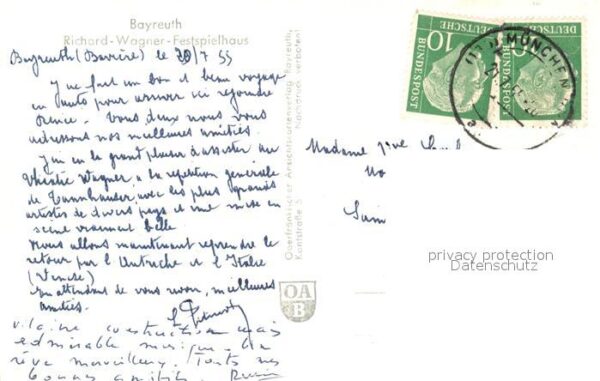 Bayreuth
Richard-Wagner-Festspielhaus
Bayreuth (Bavière) le 20/7 55
J'ai fait un bon et beau voyage
en auto pour arriver ici rejoindre
. Vous deux nous vous
adressons nos meilleures amitiés.
J'ai eu le grand plaisir d'assister au
théâtre Wagner à la repetition generale
de Tannhauser avec les plus grands
artistes de divers pays et une mise en
scène vraiment belle
Nous allons maintenant reprendre le
retour par l'Autriche et l'Italie
(Venise)
En attendant de vous revoir, meilleures
amitiés.
vilaine construction mais
admirable musique. Un
rêve merveilleux. Toutes mes
bonnes amitiés
Oberfränkischer Ansichtskartenverlag, Bayreuth,
Kantstraße 5 Nachdruck verboten!
OA
B
10
DEUTSCHE
BUNDESPOST
DEUTSCHE
BUNDESPOST
MÜNCHEN
Madame
privacy protection
Datenschutz